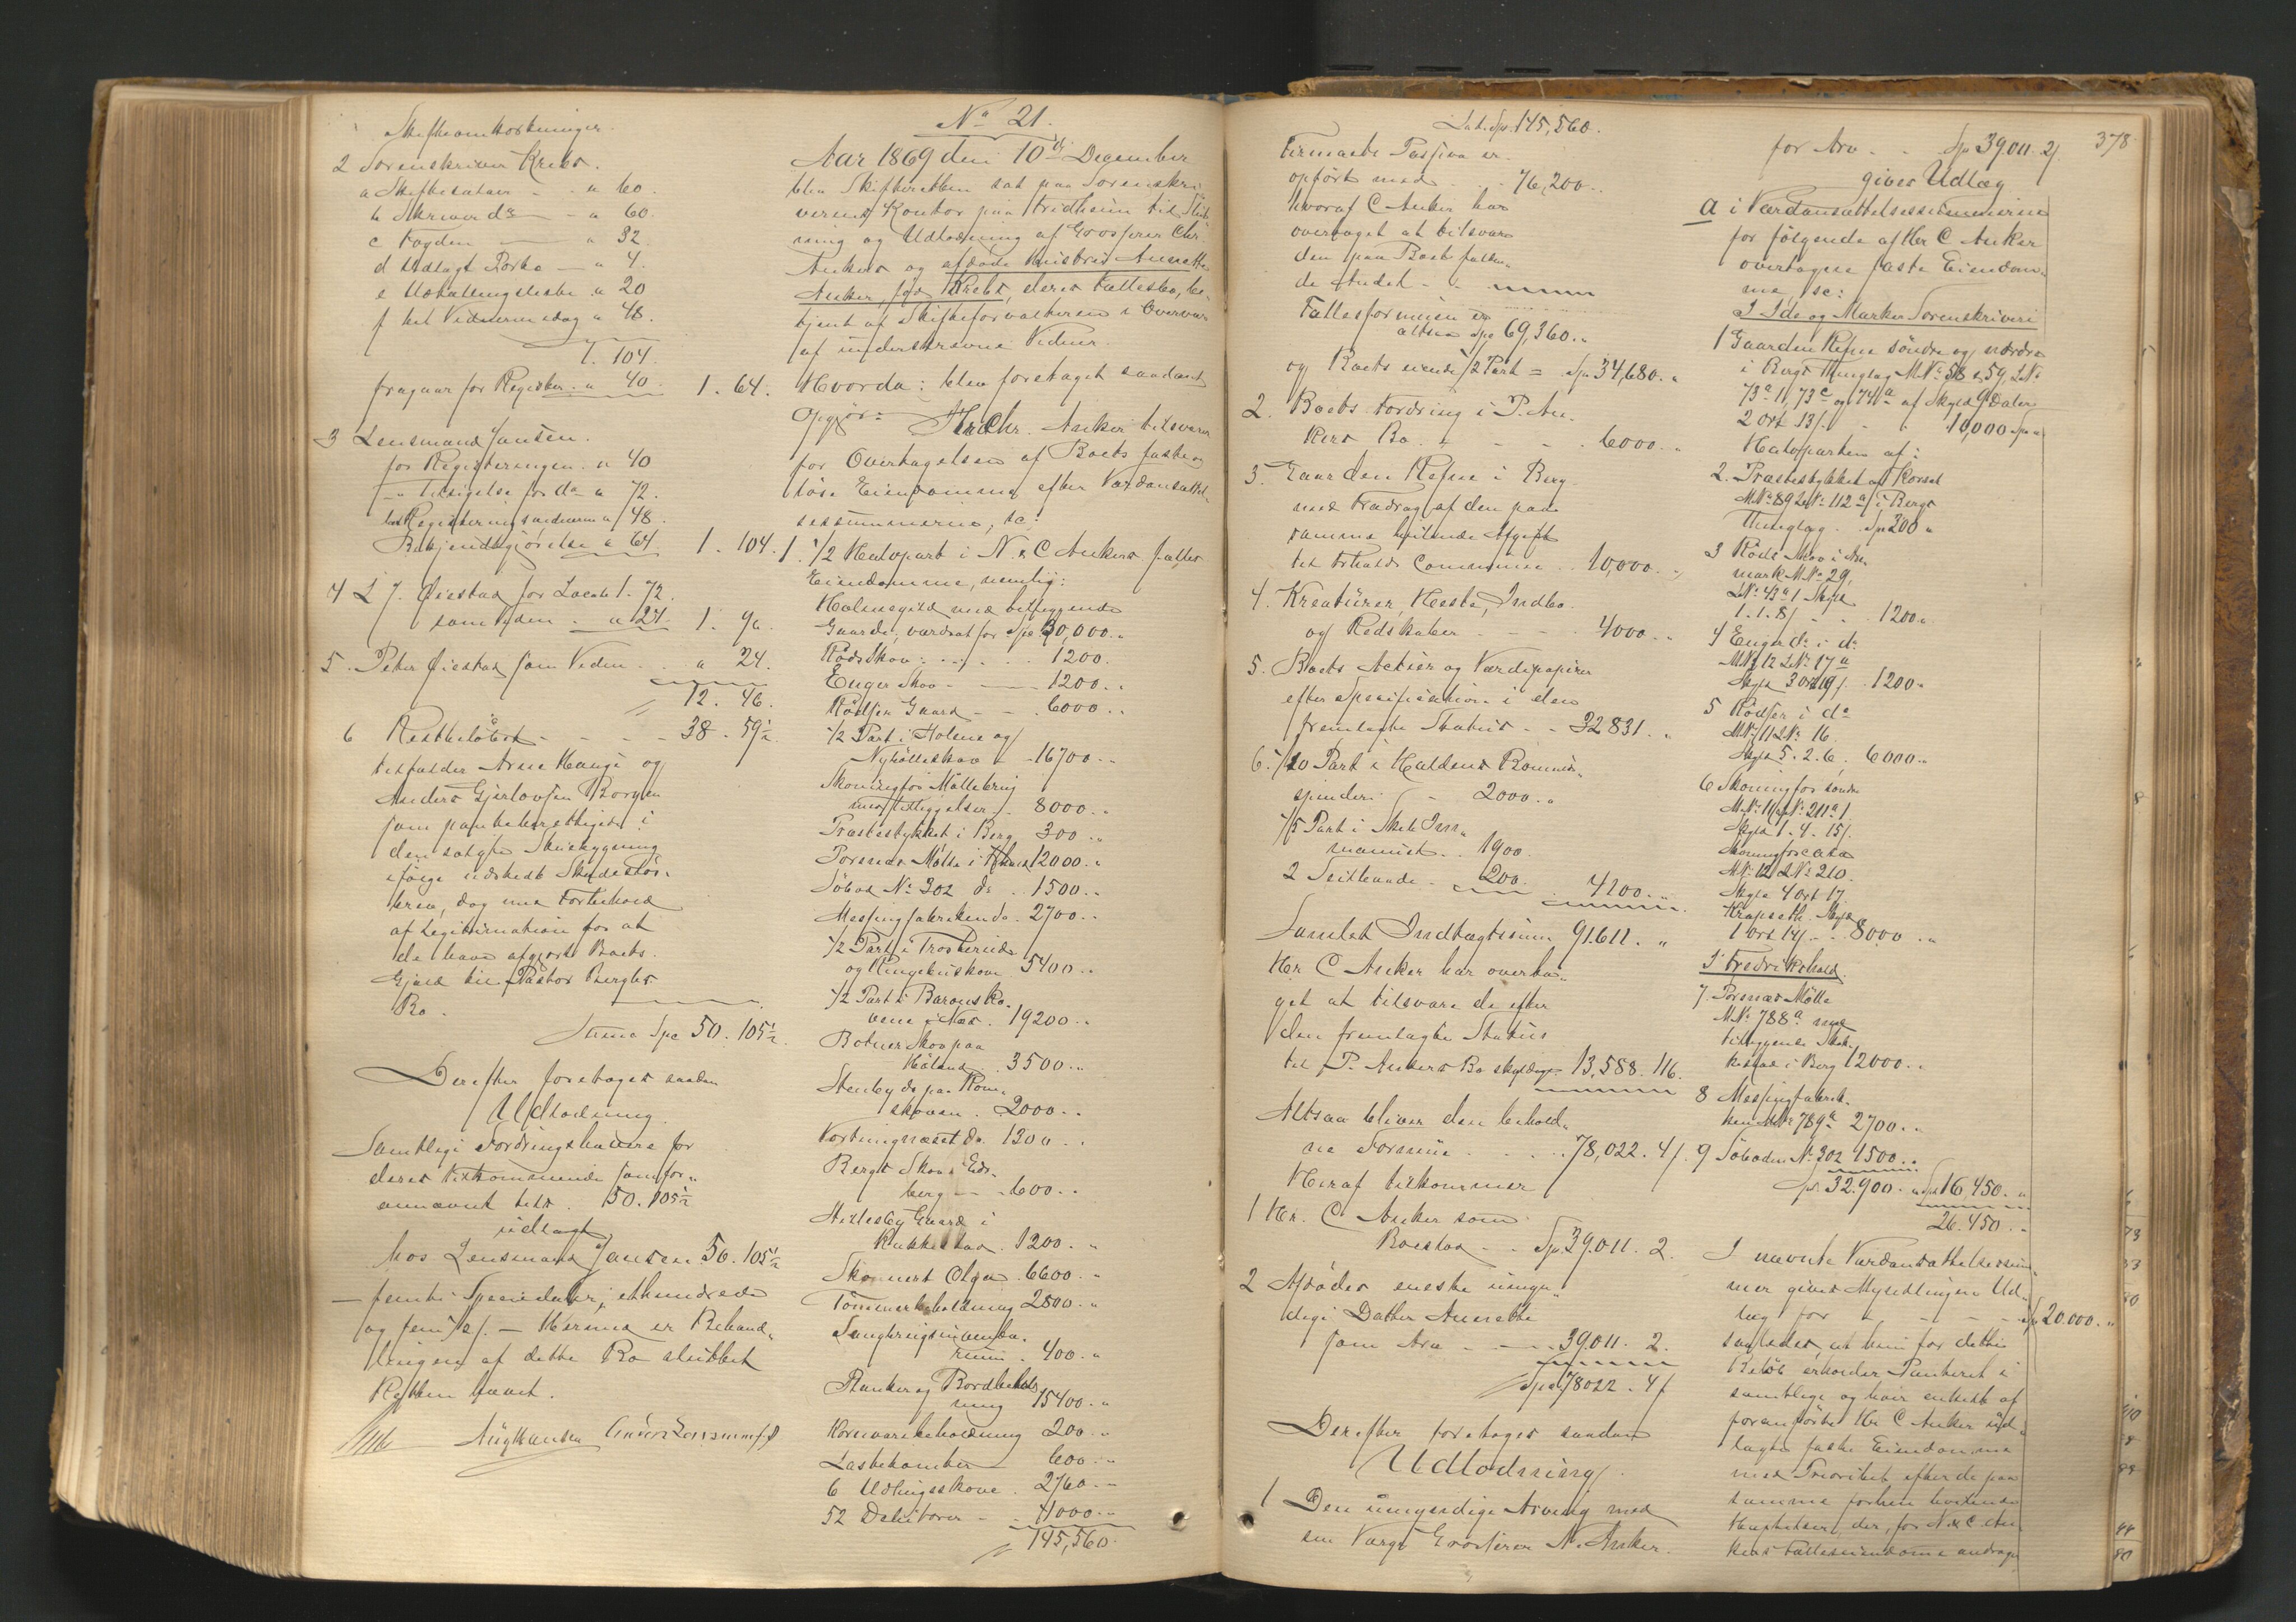 Skifteomkostninger.
2 Sorenskriver Krebs.
a Skiftesalær - - " 60.
b Skriver do - " 60.
c Fogden - " 32
d Udlagt Porto - " 4.
e Udtællingsliste " 20
f hel Vidnerne idag " 48.
1. 104.
fragaar for Register. " 40. 1. 64.
3 Lensmand Jansen.
for Registreringen. " 40
- " Tilsigelse for do " 72.
hos Registreringsvidnerne " 48.
Bekjendtgjørelse " 64 1. 104.
4 L J. Øiestad for Locale 1. 72.
som Viden. " 24. 1. 96.
5. Peter Øiestad som Viden . " 24.
12. 46.
6 Restbeløbet - - - - 38. 59½
tilfalder Arne Hauge og
Anders Gjerlovsen Borgen
som panteberettigede i
den solgte Huusbygning
ifølge udstedt Skadeslös-
brev, dog med Forbehold
af Legitimation for at
de have afgjort Boets
Gjæld til Pastor Berghs
Bo.
Summa Spd 50. 105½.
Derefter foretoges saadan
Udlodning.
Samtlige Fordringshavere for
deres Tilkommende som for-
annævnt tils. 50. 105½
udlagt
hos Lensmand Jansen 50. 105½
- femti Speciedaler, ethundrede
og fem ½ s. - Hermed er Behand-
lingen af dette Bo sluttet
Retten hævet.
No 21.
Aar 1869 den 10de December
blev Skifteretten sat paa Sorenskri-
verens Kontor paa Fridheim til Slut-
ning og Udlodning af Grosserer Chr.
Ankers og afdøde Hustru Annette
Anker fød Krebs, deres Fællesbo, be-
tjent af Skifteforvalteren i Overvær
af underskrevne Vidner.
Hvorda: blev foretaget saadant
Opgjør: Hr Chr. Anker tilsvarer
for Overtagelsen af Boets faste og
løse Eiendomme, efter Værdiansættel-
sessummerne, sc:
1. ½ Halvpart i N. & C Ankers fælles
Eiendomme, nemlig:
Holmegild med tilliggende
Gaarde, værdsat for Spd 30,000. "
Röds Skov - . . . . 1200.
Enger Skov - - - 1200. "
Rödsen Gaard - - 6000. "
½ Part i Holme og
Nyböllesskov " - 16700. "
Skoningfos Möllebrug
med Tilliggelser. - 8000. "
Præstestykket i Berg 300 "
Porsnæs Mølle i 12000. "
Söbod No 302 do . . 1500. "
Messingfabriken do. 2700. "
½ Part i Trosterud
og Ringebuskoven 5400. "
½ Part i Barons Sko-
vene i Næs . 19200. "
Botner Skov paa
Höland. 3500. "
Stenby do paa Röm-
skoven . 2000. "
Kortningnæset do. 1300. "
Bergs Skov i Eids-
berg - - 600. "
Hellesby Gaard i
Rakkestad. 1200. "
Skonnert Olga. 6600. "
Tömmerbeholdning 2800. "
400. "
Planke og Bordbehold-
ning 15400. "
Kornvarebeholdning 200. "
Lastekomber 600. "
6 Udlingsskove . 2760. "
52 Debitorer - . 4000. "
145,560.
378
Lat. Sp. 145,560.
Firmaets Passiva er
opført med . . . 76,200. "
hvoraf C Anker har
overtaget at tilsvare
den paa Boet falden-
de Andel - -
Fællesformuen er
altsaa Spd 69,360. "
og Boets eiende ½ Part = Spd 34,680. "
2. Boets Fordring i P. An-
kers Bo. - - - - 6000. "
3. Gaarden Refne i Berg
med Fradrag af den paa
samme heftende Afgift
til Fr.halds Commune . . 10,000. "
4. Kreaturer, Heste, Indbo
og Redskaber - - - 4000. "
5. Boets Actier og Værdipapirer
efter Specification i den
fremlagte Status - - 32831. "
6. 1/20 Part i Haldens Bomuds-
spinderi - - 2000. "
1/5 Part i Skebs Imma-
nuel. . 1900.
2 . 200. 4100. "
Samlet Indtægtssum 91611. "
Hr. C Anker har overta-
get at tilsvare de efter
den fremlagte Status
til P. Ankers Bo skyldige. 13,588. 116.
Altsaa bliver den behold-
ne Formue . . . . 78,022. 4 s.
Heraf tilkommer
1 Hr. C Anker som
Boeslod - - Spd 39.011. 2.
2 Afdødes eneste umyn-
dige Datter Annette
som Arv - - - 39.011. 2.
Spd 78022. 4 s
Derefter foretoges saadan
Udlodning.
1 Den umyndige Arving med
sin Værge Grosserer N. Anker.
for Arv - . Spd 39.011. 2 s.
gives Udlæg
a i Værdiansættelsessummerne
for følgende af Hr C Anker
overtagne faste Eiendom-
me, sc:
I Ide og Marker Sorenskriveri
1 Gaarden Refne söndre og nordre
i Bergs Thinglag M No 58 & 59, L No
73a 1, 73c og 74a af Skyld 9 Daler
2 Ort 13 s. - - 10,000 Spd "
Halvparten af:
2. Præstestykket af Korsæt
M. No 89 L No 112a i Bergs
Thinglag. Spd 300 "
3 Röds Skov i Are-
mark M No 29,
L No 43a 1 Skyld
1. 1. 8 s. . 1200. "
4 Enger do i do
M No 12 L No 17a
Skyld 3 Ort 19 s. 1200. "
5 Rödsen i do
M No 11 L No 16.
Skyld 5. 2. 6. 6000. "
6 Skoningfos søndre
M No L No 211a 1.
Skyld 1. 4. 15 s.
M No 121 L No 210.
Skyld 4 Ort 17.
Krapseth. Skyld
1 Ort 14 s. - 8000. "
I Fredrikshald.
7. Porsnæs Mölle
M No 788a med
tilliggende
i Berg 12000. "
8 Messingfabrik-
ken M No 789a 2700. "
9 Söboden No 302 1500. "
Spd 32.900. " Spd 16,450. "
26.450. "
I nævnte Værdiansættelsessum-
mer gives Myndlingen Ud-
læg for - - - Spd 20.000. "
saaledes, at hun for dette
Beløb erholder Panteret i
samtlige og hver enkelt af
foranførte Hr C Anker ud-
lagte faste Eiendomme
med Prioritet efter de paa
samme forhen heftende
Heftelser, der, for N & C An-
kers Fælleseiendomme andrager